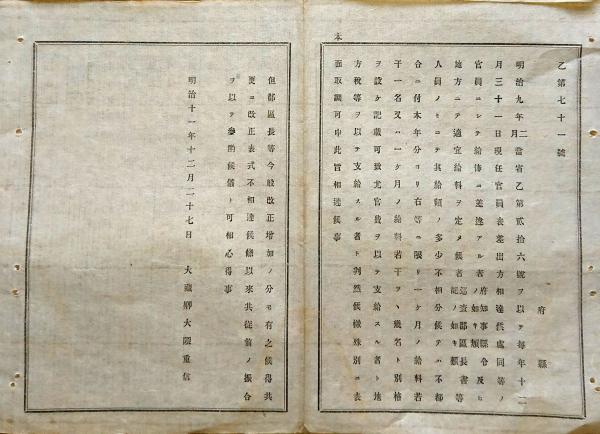 乙第七十一號
府縣
明治九年二月當省乙第貳拾六號ヲ以テ毎年十二
月三十一日現任官員表差出方相達候處同等ノ
官員ニシテ給俸ニ差違アル者府知事縣令及ヒノ如キ類
地方ニテ適宜給料ヲ定メ候者巡査郡區長書記ノ如キ類等
人員ノミニテ其給額ノ多少不相分候テハ不都
合ニ付本年分ヨリ右等ニ限リ一ケ月ノ給料若
干一名又ハ一ケ月ノ給料若干ツヽ幾名ト別格
ヲ設ケ記載可致尤官費ヲ以テ支給スル者ト地
方税等ヲ以テ支給スル者ト判然候樣殊別ニ表
面取調可申此旨相達候事
但郡區長等今般改正增加ノ分モ有之候得共
更ニ改正表式不相達候條以來共從前ノ振合
ヲ以テ參酌候儀ト可相心得事
明治十一年十二月二十七日 大藏卿大隈重信
本